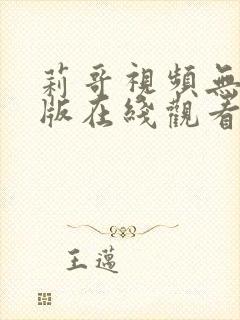 莉哥視頻無
版在綫觀看
王邁